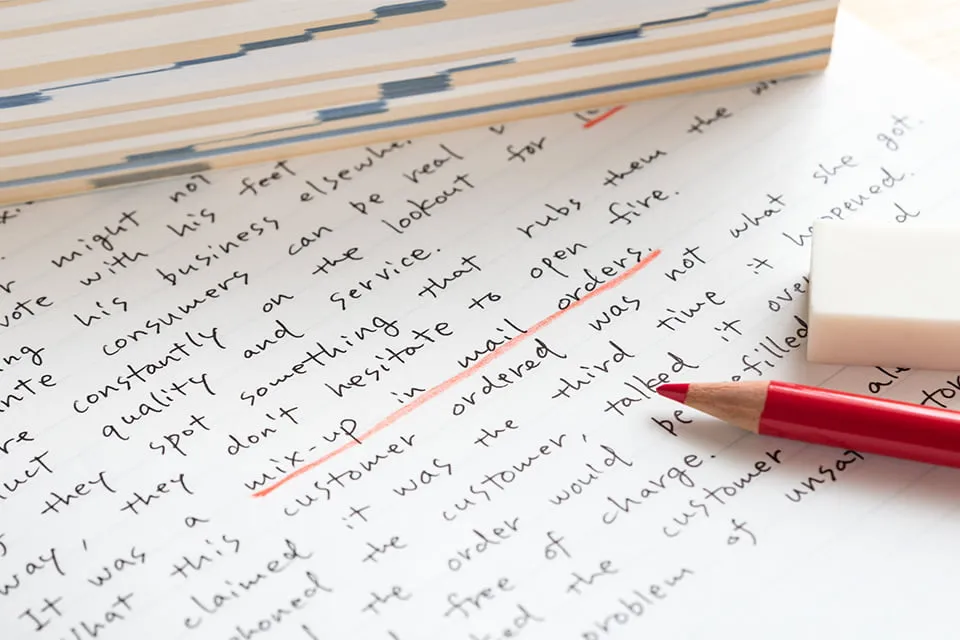 might not
vote with his feet
his business
consumers can be real
constantly on the lookout for
quality and service.
they spot something that rubs them the
way, they don't hesitate to open fire.
It was a mix-up in mail orders.
What this customer ordered was not what she got.
claimed it was the third time it
the customer, talked it over
the order would be
free of charge.
the customer
problem of